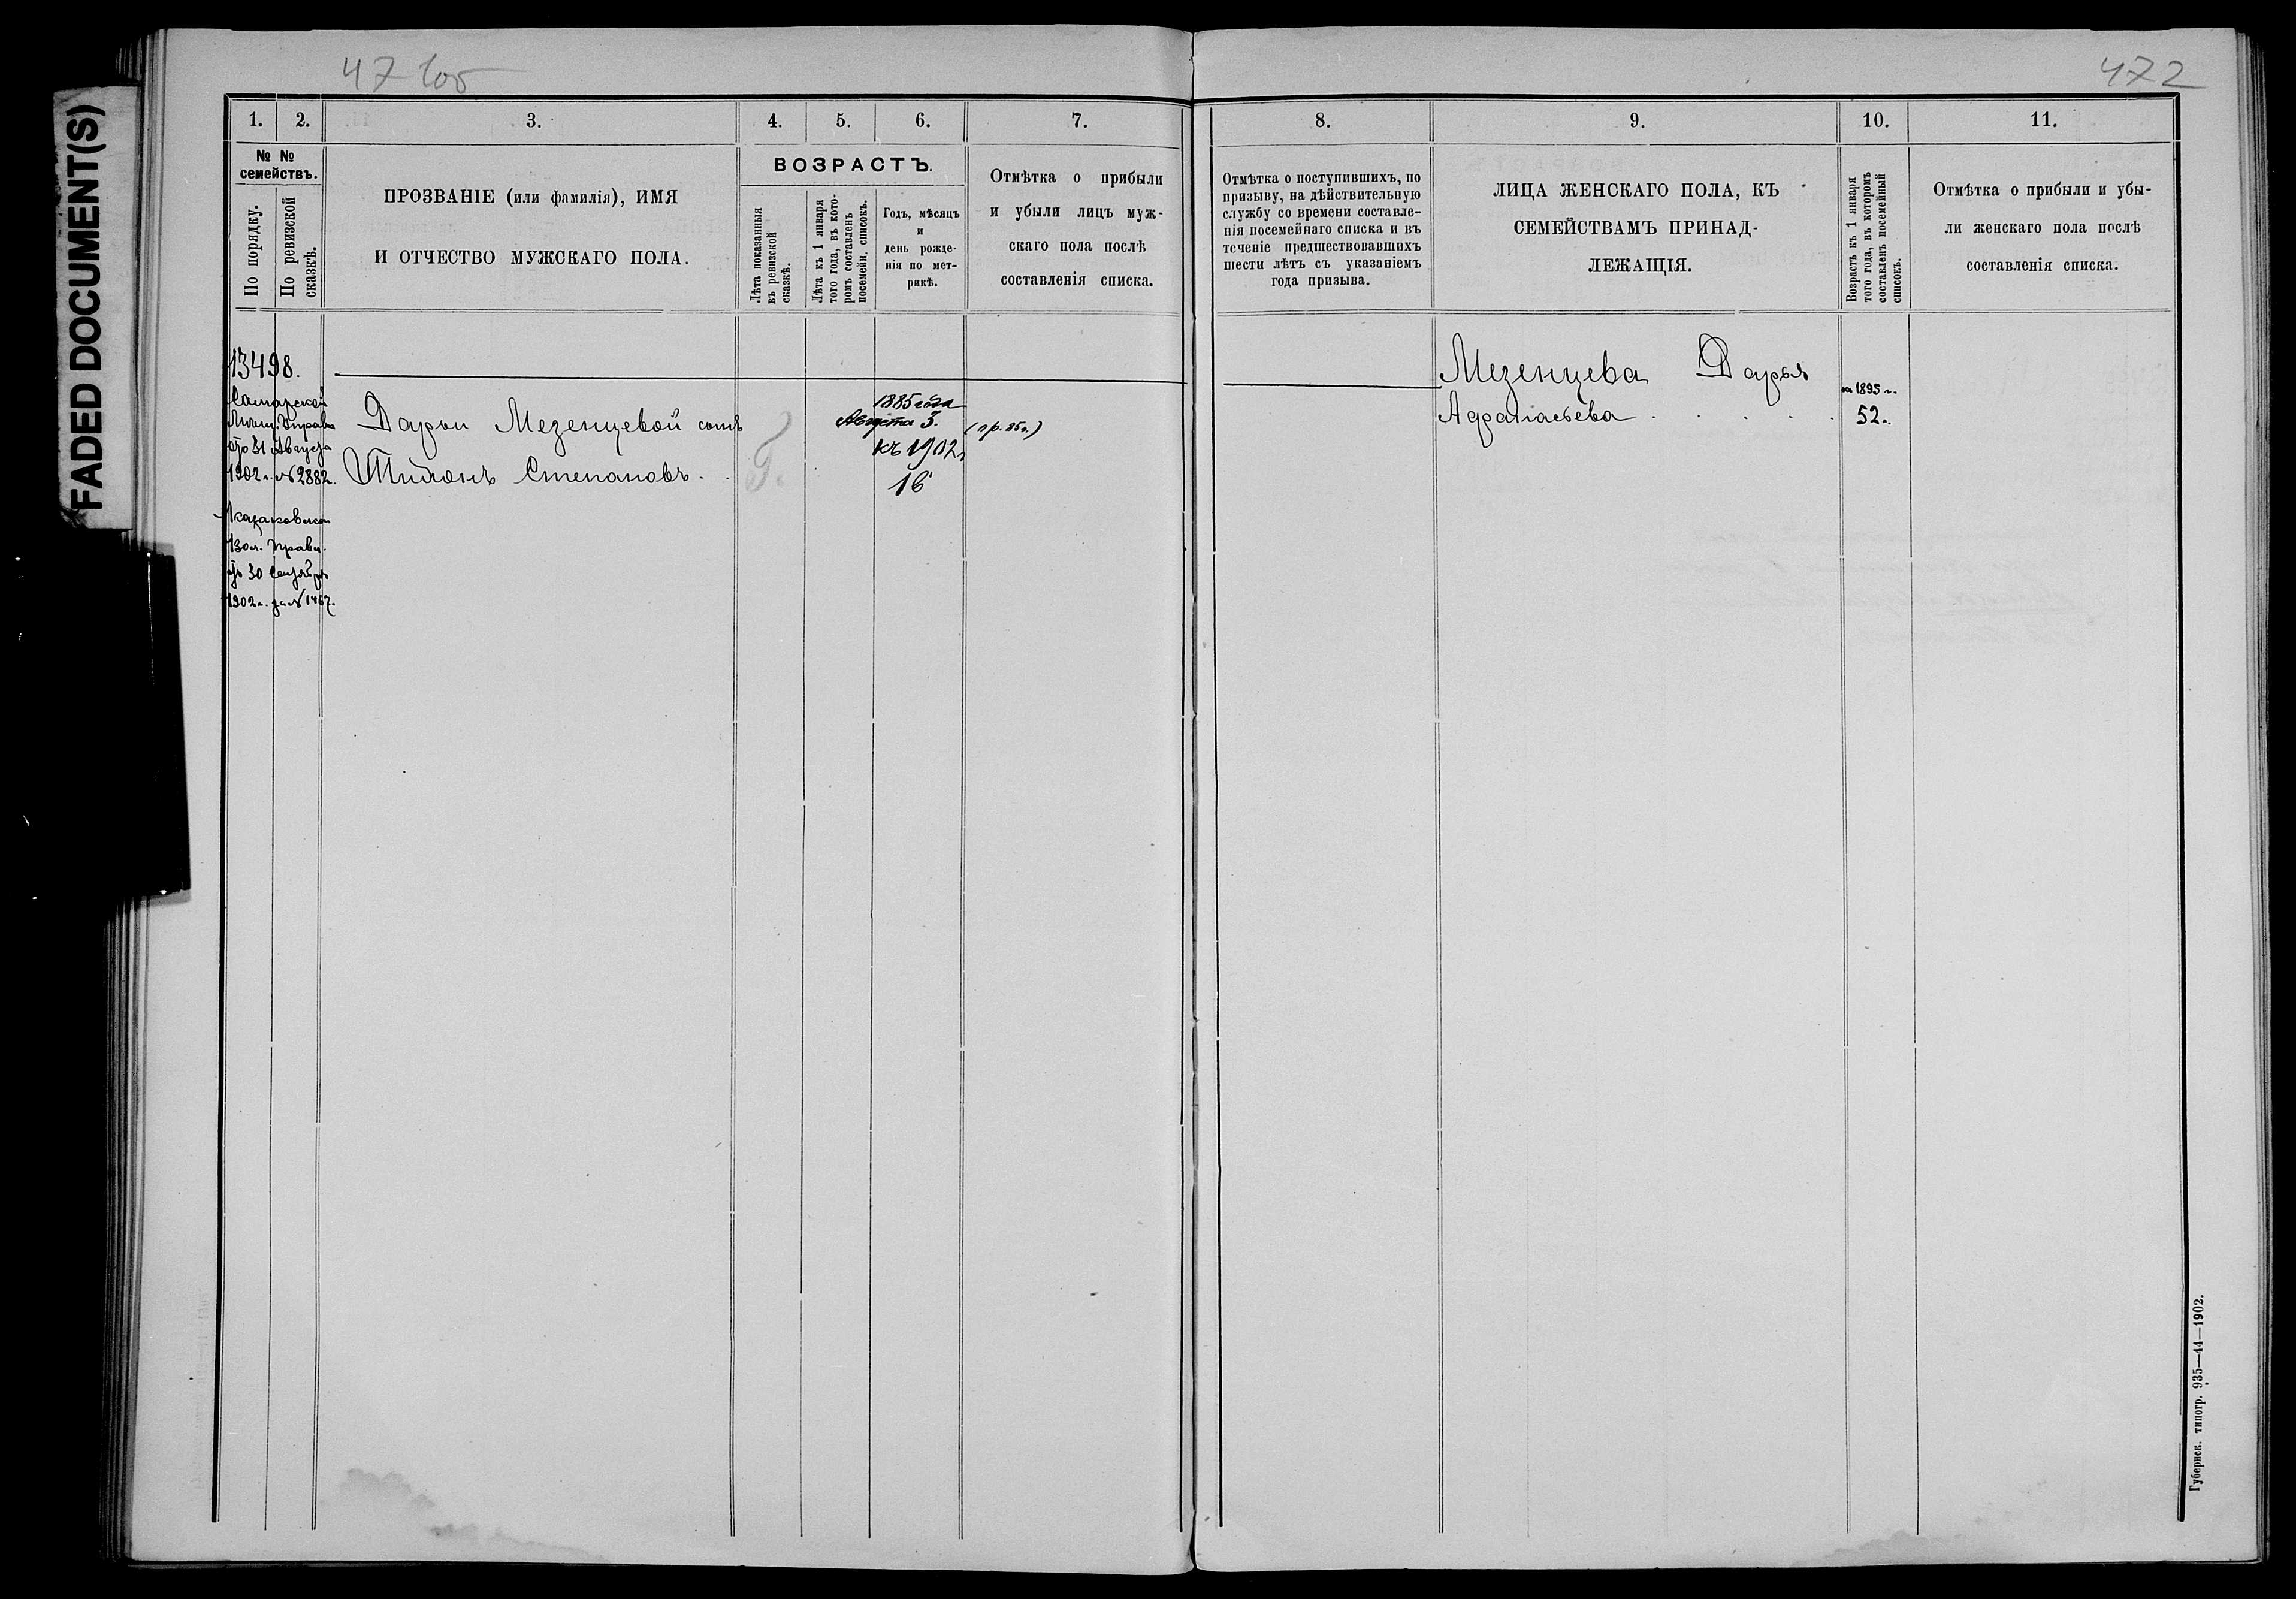 FADED DOCUMENT(S)
471об
472
1. 2. 3. 4. 5. 6. 7.
№ №
семействъ.
По порядку.
По ревизской
сказкѣ.
ПРОЗВАНІЕ (или фамилія), ИМЯ
И ОТЧЕСТВО МУЖСКАГО ПОЛА.
ВОЗРАСТЪ.
Лѣта показанныя
въ ревизской
сказкѣ.
Лѣта къ 1 января
того года, въ кото-
ромъ составленъ
посемейн. списокъ.
Годъ, мѣсяцъ
и
день рожде-
нія по мет-
рикѣ.
Отмѣтка о прибыли
и убыли лицъ муж-
скаго пола послѣ
составленія списка.
13498.
Самарской
Мѣщ. Управы
отъ 31 Августа
1902 г. № 2882.
Волост. Правл.
отъ 30 Сентября
1902 г. за № 1467.
Дарьи Мезенцевой сынъ
Тихонъ Степановъ.
1885 года
Августа 3.
(пр. 85 г.)
къ 1902 г.
16
8. 9. 10. 11.
Отмѣтка о поступившихъ, по
призыву, на дѣйствительную
службу со времени составле-
нія посемейнаго списка и въ
теченіе предшествовавшихъ
шести лѣтъ съ указаніемъ
года призыва.
ЛИЦА ЖЕНСКАГО ПОЛА, КЪ
СЕМЕЙСТВАМЪ ПРИНАД-
ЛЕЖАЩІЯ.
Возрастъ къ 1 января
того года, въ которомъ
составленъ посемейный
списокъ.
Отмѣтка о прибыли и убы-
ли женскаго пола послѣ
составленія списка.
Мезенцева Дарья
на 1895 г.
Афанасьева
52.
Губернск. типогр. 935—44—1902.